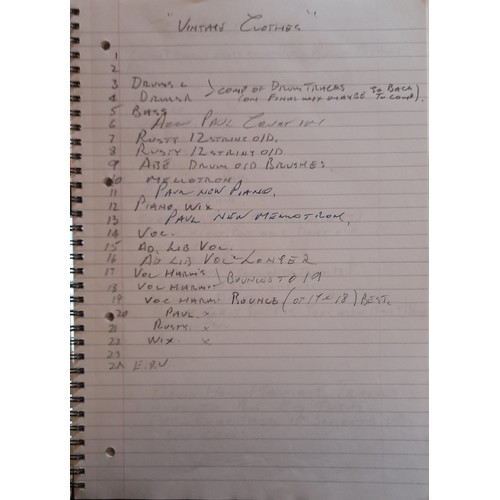 "Vintage Clothes"
1
2
3 Drums L } Comp of Drum Tracks
4 Drums R (on final mix maybe go back to comp).
5 Bass
6 Paul
7 Rusty 12 string O/D.
8 Rusty 12 string O/D
9 Abe Drum O/D Brushes.
10 Mellotron
11 Paul New Piano.
12 Piano, Wix.
13 Paul New Mellotron.
14 Voc.
15 Ad. Lib Voc.
16 Ad Lib Voc Longer
17 Voc Harm's } Bounces to 19
18 Voc Harm's
19 Voc Harm Bounce (of 17 & 18) Best.
20 Paul x
21 Rusty x
22 Wix x
23
24